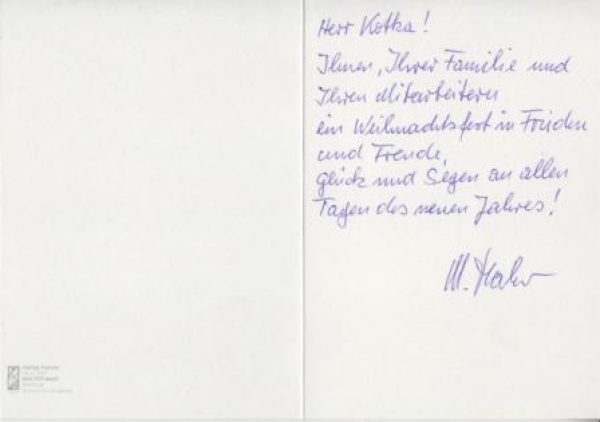 Herr Kotka!
Ihnen, Ihrer Familie und
Ihren Mitarbeitern
ein Weihnachtsfest in Frieden
und Freude,
Glück und Segen an allen
Tagen des neuen Jahres!